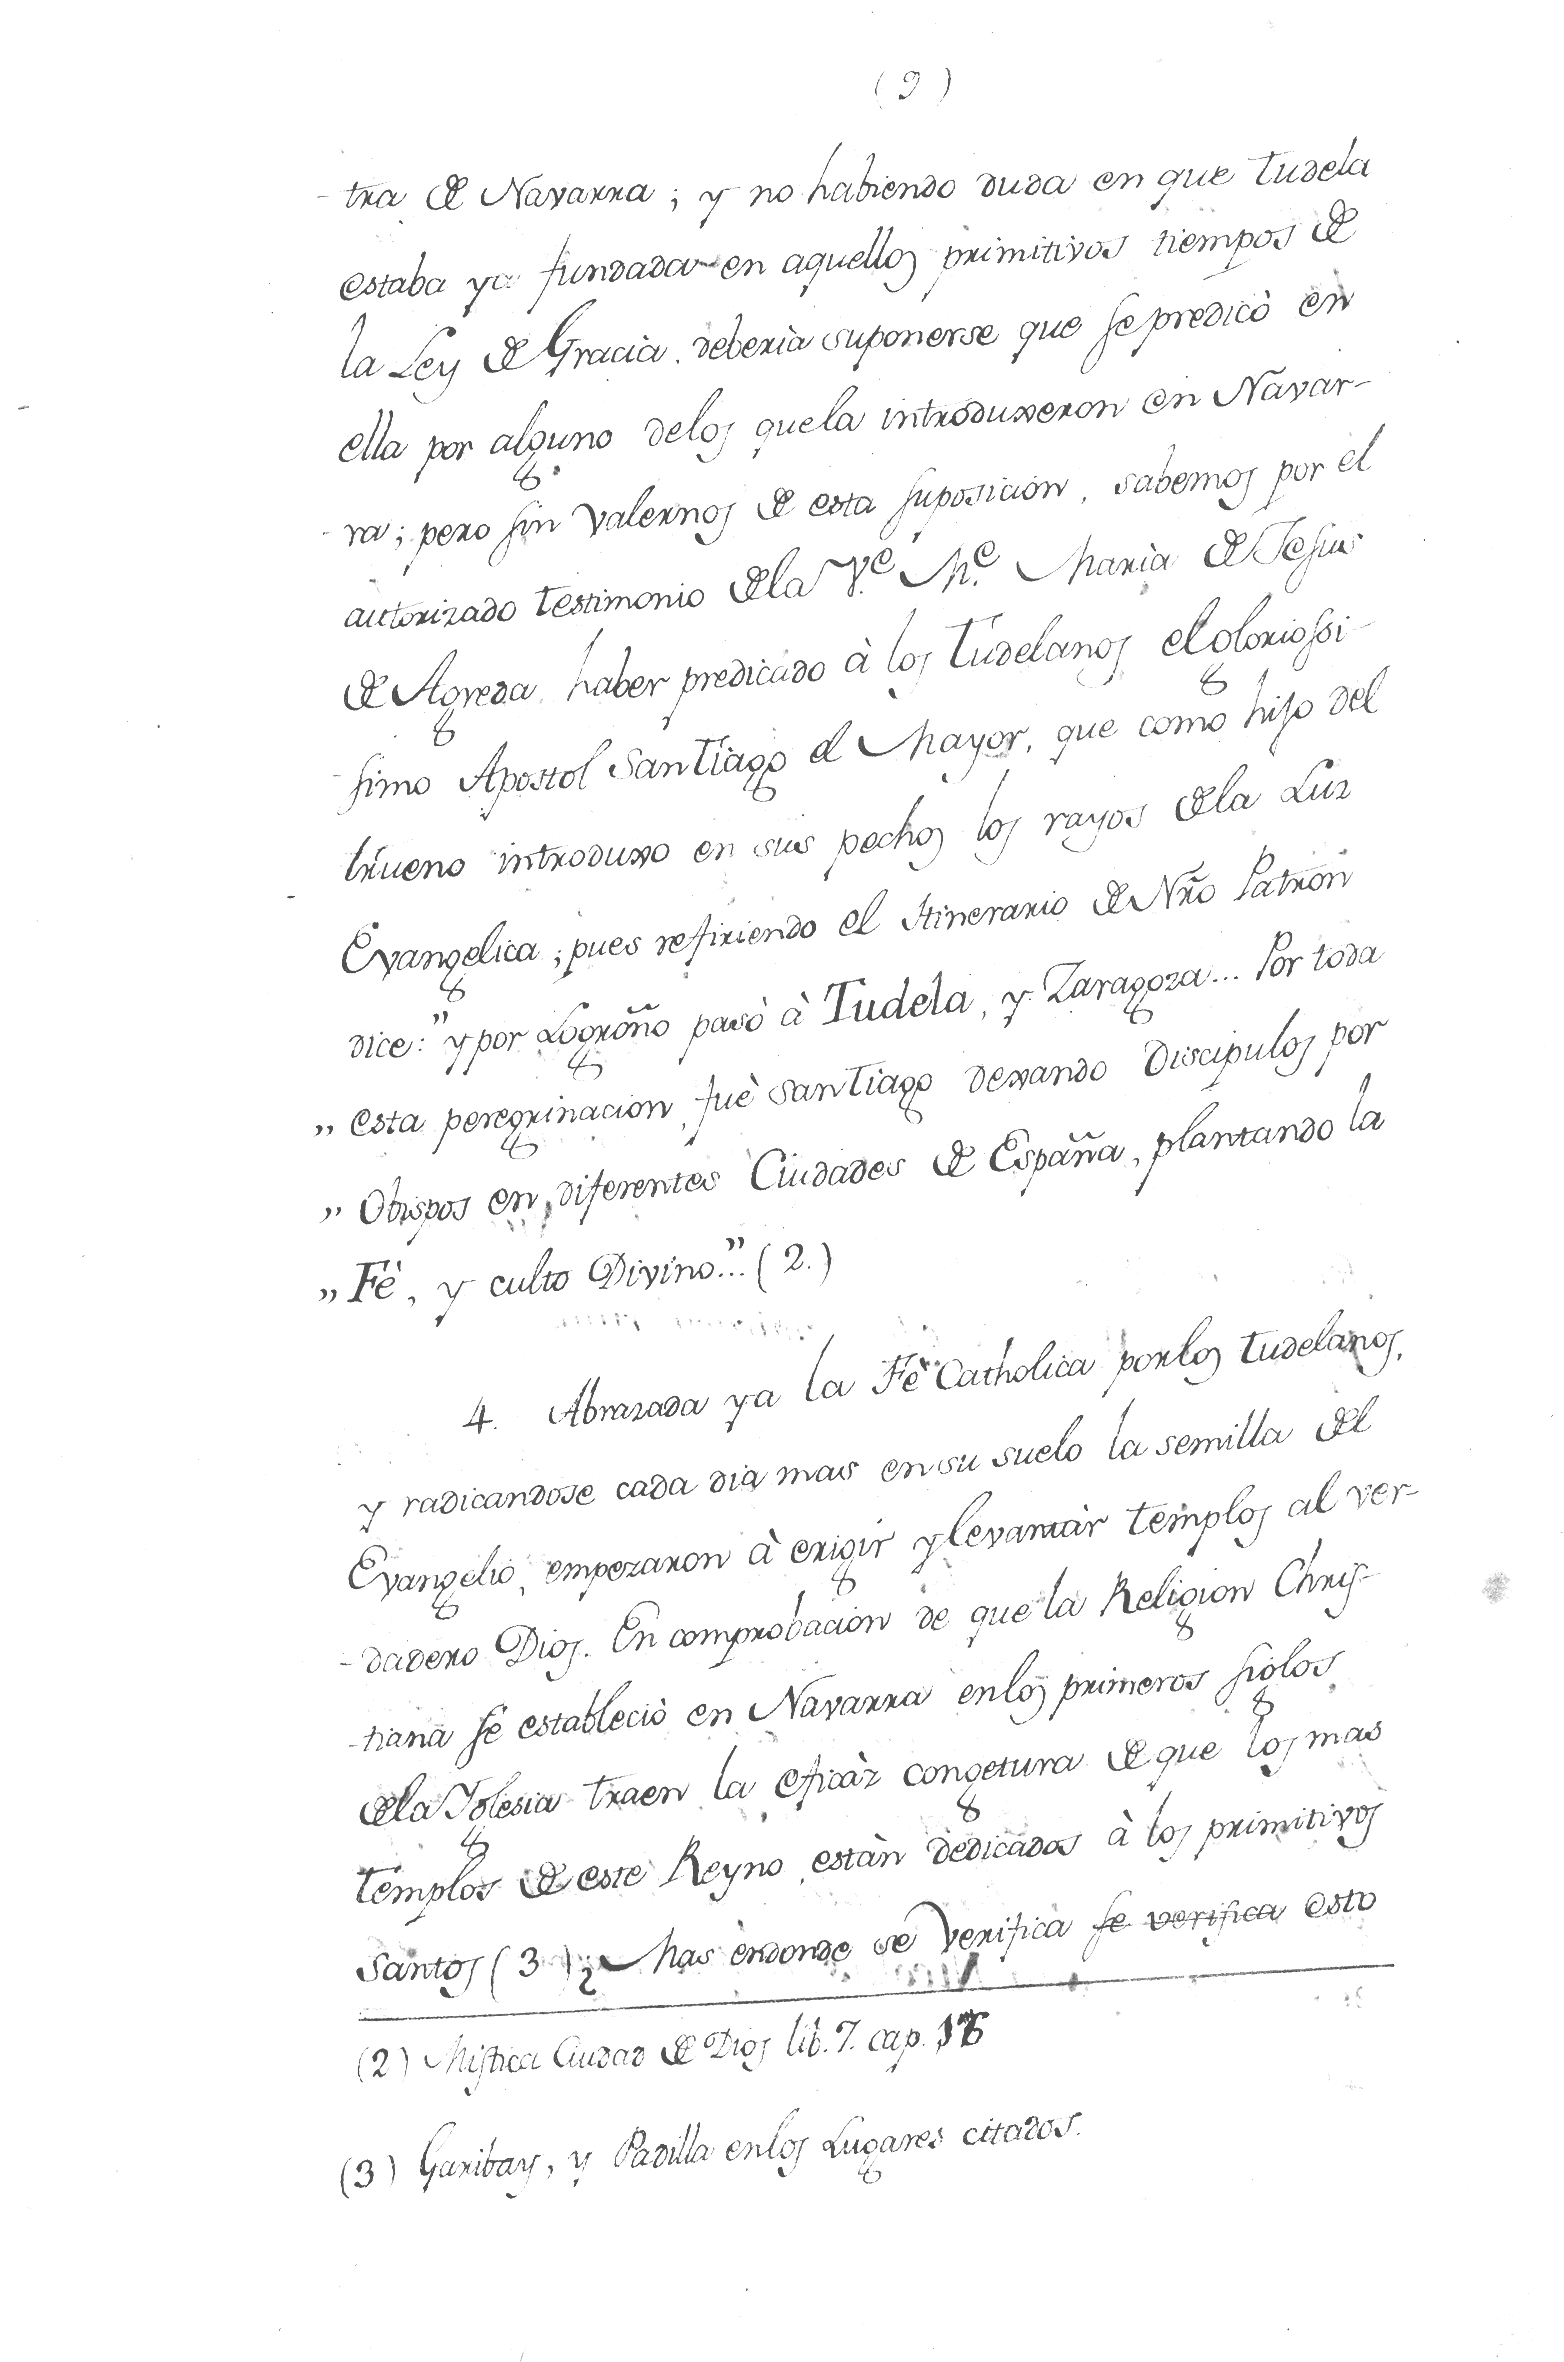 (9)
-tra de Navarra; y no habiendo duda en que Tudela
estaba ya fundada en aquellos primitivos tiempos de
la Ley de Gracia, deberia suponerse que se predicò en
ella por alguno delos quela introduxeron en Navar-
-ra; pero sin valernos de esta suposicion, sabemos por el
autorizado testimonio dela V.e M.e Maria de Jesus
de Agreda, haber predicado à los Tudelanos el gloriossi-
-simo Apostol SanTiago el Mayor, que como hijo del
trueno introduxo en sus pechos los rayos dela Luz
Evangelica; pues refiriendo el Itinerario de Nr̃o Patron
dice: "y por Logroño pasò à Tudela, y Zaragoza... Por toda
" esta peregrinacion, fuè SanTiago dexando Discipulos por
" Obispos en diferentes Ciudades de España, plantando la
" Fè, y culto Divino..." (2.)
4. Abrazada ya la Fè Catholica porlos Tudelanos,
y radicandose cada dia mas en su suelo la semilla del
Evangelio, empezaron à erigir y levantàr Templos al ver-
-dadero Dios. En comprobacion de que la Religion Chris-
-tiana se estableciò en Navarra enlos primeros siglos
dela Iglesia traen la eficàz congetura de que los mas
Templos de este Reyno, estàn dedicados à los primitivos
Santos (3); Mas endonde se verifica se verifica esto
(2) Mistica Ciudad de Dios lib. 7. cap. 16
(3) Garibay, y Padilla enlos Lugares citados.